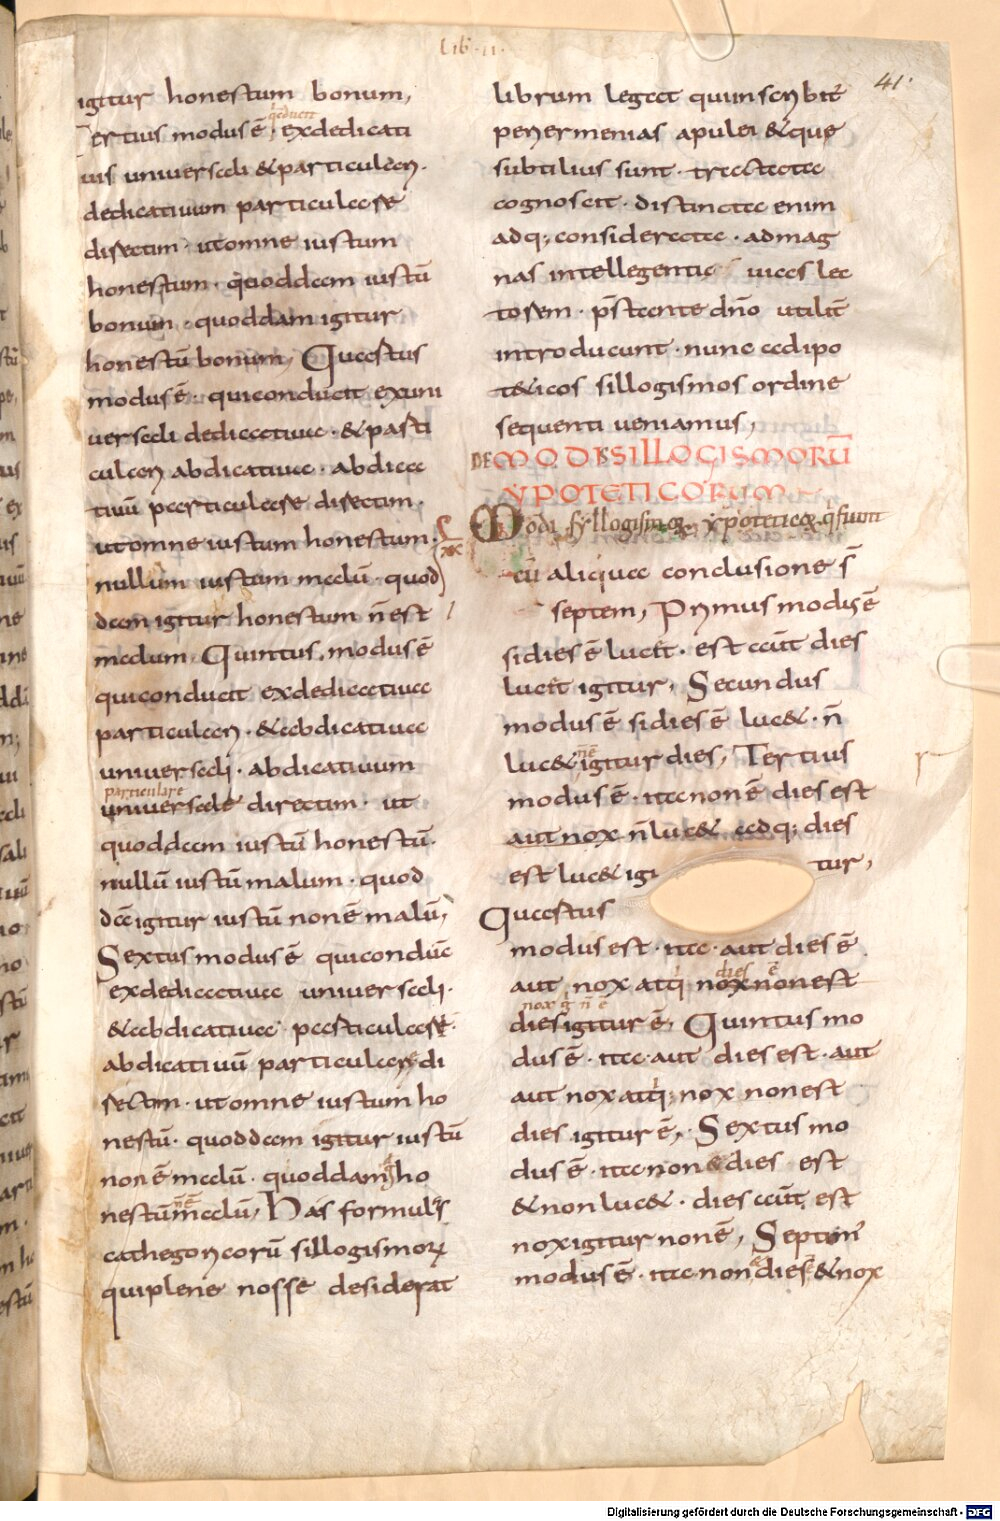 lib · ii ·
41 ·
igitur honestum bonum,
Tertius modus ē · ex dedicati
q̄ducit
uis uniuersali & particulari ·
dedicatiuum particulare
directim · ut omne iustum
honestum · quoddam iustū
bonum · quoddam igitur
honestū bonum, Quartus
modus ē · qui conducit ex uni
uersali dedicatiua · & parti
culari abdicatiua · abdica
tiuū particulare directim ·
ut omne iustum honestum ·
nullum iustum malū · quod
dam igitur honestum n̄ est
malum, Quintus modus ē
qui conducit ex dedicatiua
particulari · & abdicatiua
uniuersali · abdicatiuum
particulare
uniuersale directim · ut
quoddam iustū honestū ·
nullū iustū malum · quod
dā igitur iustū non ē malū,
Sextus modus ē qui conduc̄
ex dedicatiua uniuersali ·
& abdicatiua particulare ·
abdicatiuū particulare di
rectim · ut omne iustum ho
nestū · quoddam igitur iustū
non ē malū · quoddam ho
nestū malū, Has formulas
n̄ ē
cathegoricorū sillogismorꝝ
qui plene nosse desiderat
librum legat qui inscribit̄
periermenias apulei & que
subtilius sunt · tractata
cognoscit · distincta enim
adq; considerata · ad mag
nas intellegentie uias lec
torem · p̄stante dn̄o utilit̄
introducunt · nunc ad ipo
teticos sillogismos ordine
sequenti ueniamus,
DE MODIS SILLOGISMORŪ
YPOTETICORUM
Modi syllogismorꝝ ypoteticorꝝ q̄ fiunt
cū aliqua conclusione s̄
septem, Primus modus ē
si dies ē lucet · est aut̄ dies
lucet igitur, Secundus
modus ē si dies ē luc& · n̄
luc& igitur dies, Tertius
n̄ ē
modus ē · ita non ē dies est
aut nox n̄ luc& adq; dies
est luc& igi tur,
Quartus
modus est · ita · aut dies ē
aut nox atq; nox non est
dies ē
nox g̊ n̄ ē
dies igitur ē, Quintus mo
dus ē · ita · aut dies est · aut
aut nox atq; nox non est
dies igitur ē, Sextus mo
dus ē · ita non & dies est
& non luc& · dies aut̄ est
nox igitur non ē, Septim'
modus ē · ita · non dies & nox
Digitalisierung gefördert durch die Deutsche Forschungsgemeinschaft - DFG